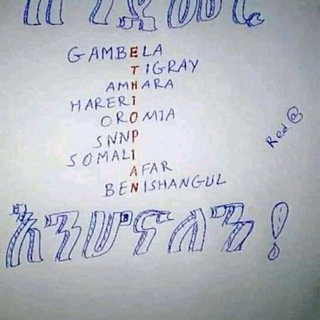 GAMBELA
TIGRAY
AMHARA
HARERI
OROMIA
SNNP
SOMALI
AFAR
BENISHANGUL
እንሆናለን!